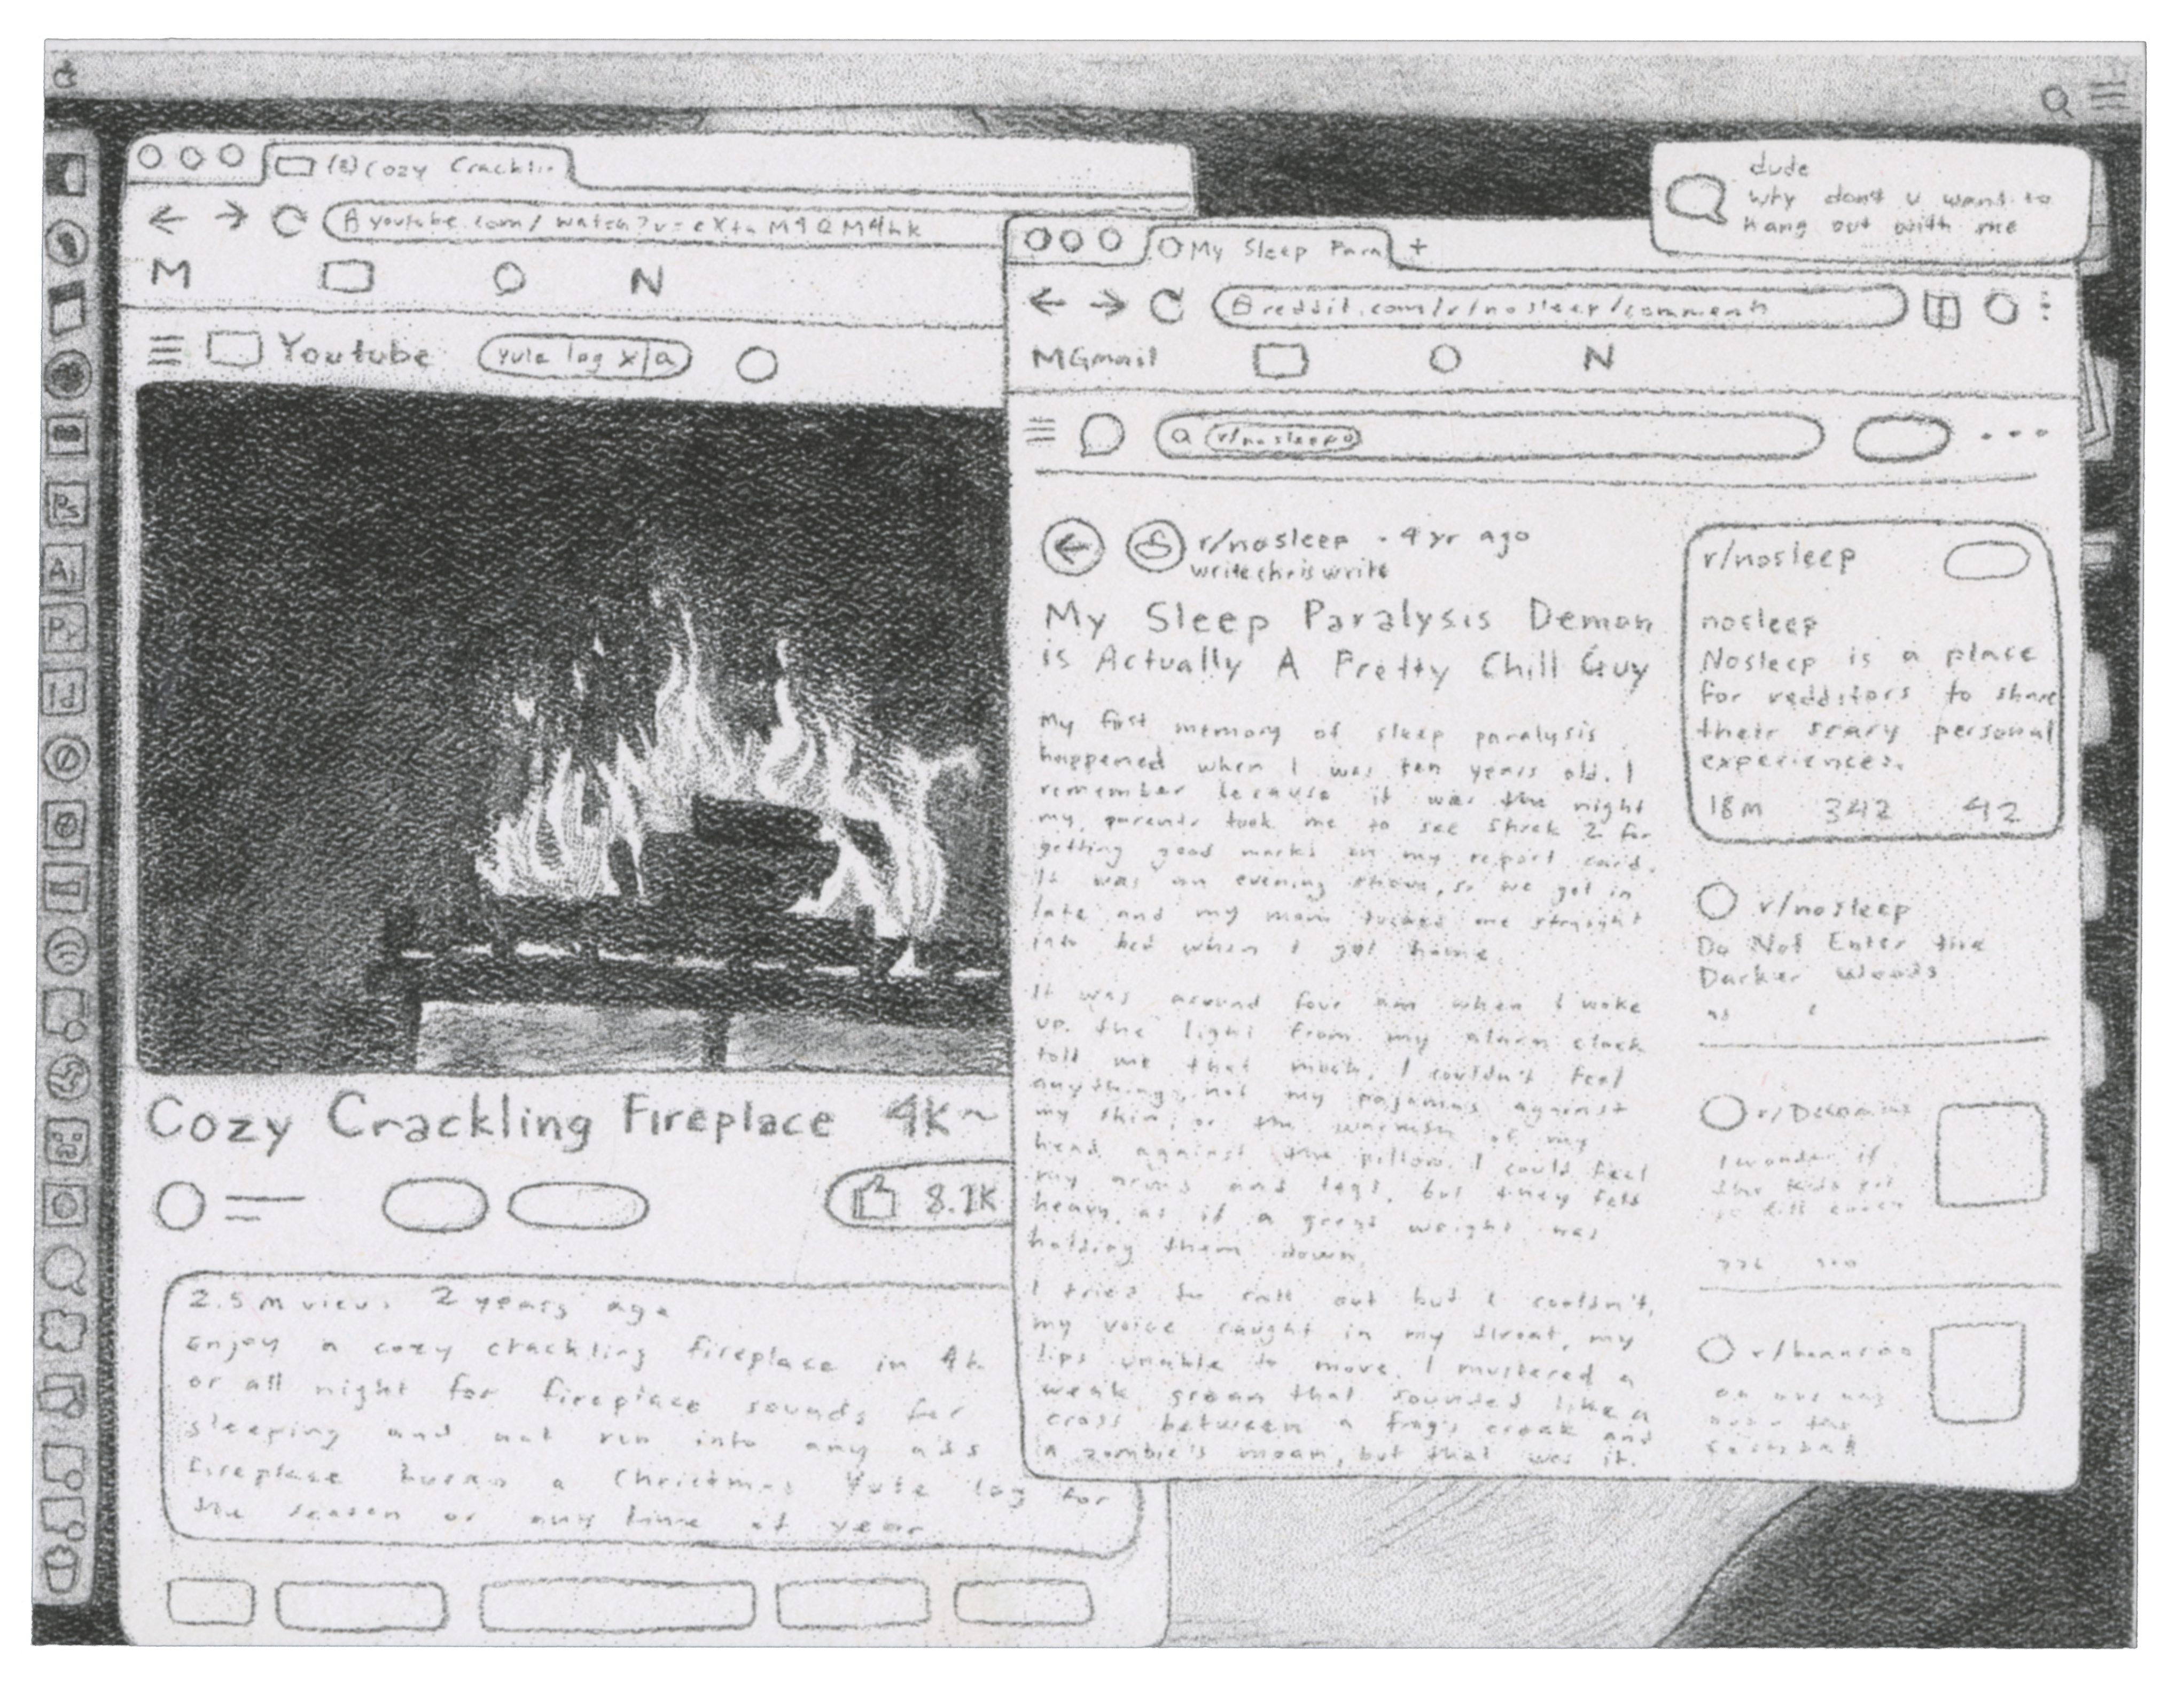 (2) Cozy Cracklin
youtube.com/watch?v=eXtnM4QM4hk
M N
Youtube yule log x
Cozy Crackling Fireplace 4K~
8.1K
2.5M views 2 years ago
Enjoy a cozy crackling fireplace in 4k
or all night for fireplace sounds for
sleeping and not run into any ads
fireplace burns a Christmas Yule log for
the season or any time of year
dude
why don't u want to
hang out with me
My Sleep Para +
reddit.com/r/nosleep/comments
M Gmail N
r/nosleep
r/nosleep · 4 yr ago
writechriswrite
My Sleep Paralysis Demon
is Actually A Pretty Chill Guy
My first memory of sleep paralysis
happened when I was ten years old. I
remember because it was the night
my parents took me to see Shrek 2 for
getting good marks on my report card.
It was an evening show, so we got in
late and my mom tucked me straight
into bed when I got home.
It was around four am when I woke
up. the light from my alarm clock
told me that much. I couldn't feel
anything, not my pajamas against
my skin, or the warmth of my
head against the pillow. I could feel
my arms and legs, but they felt
heavy, as if a great weight was
holding them down.
I tried to call out but I couldn't,
my voice caught in my throat, my
lips unable to move. I mustered a
weak groan that sounded like a
cross between a frog's croak and
a zombie's moan, but that was it.
r/nosleep
nosleep
Nosleep is a place
for redditors to share
their scary personal
experiences.
18M 342 42
r/nosleep
Do Not Enter the
Darker Woods
I wonder if
the kids
Ps
Ai
Pr
Id